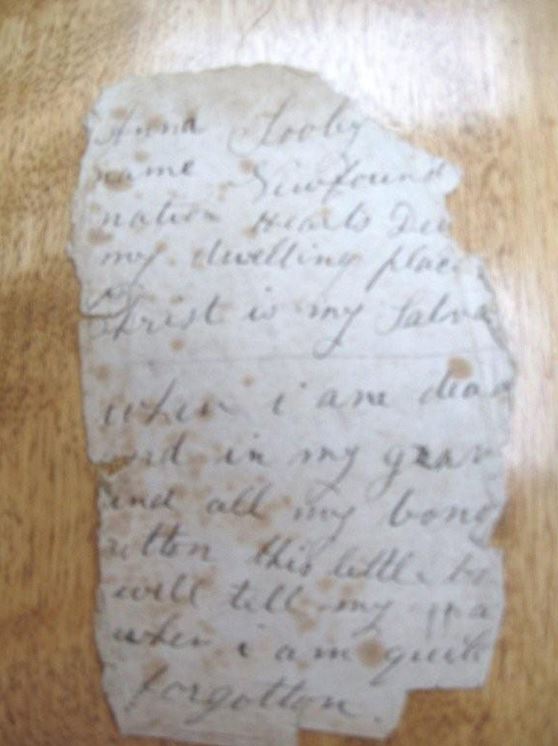 Anna Looby
name Newfound
nation Hearts De
my dwelling place
Christ is my Salva
when i am dead
and in my grav
and all my bons
rotton this little bo
will tell my na
when i am quite
forgotton.